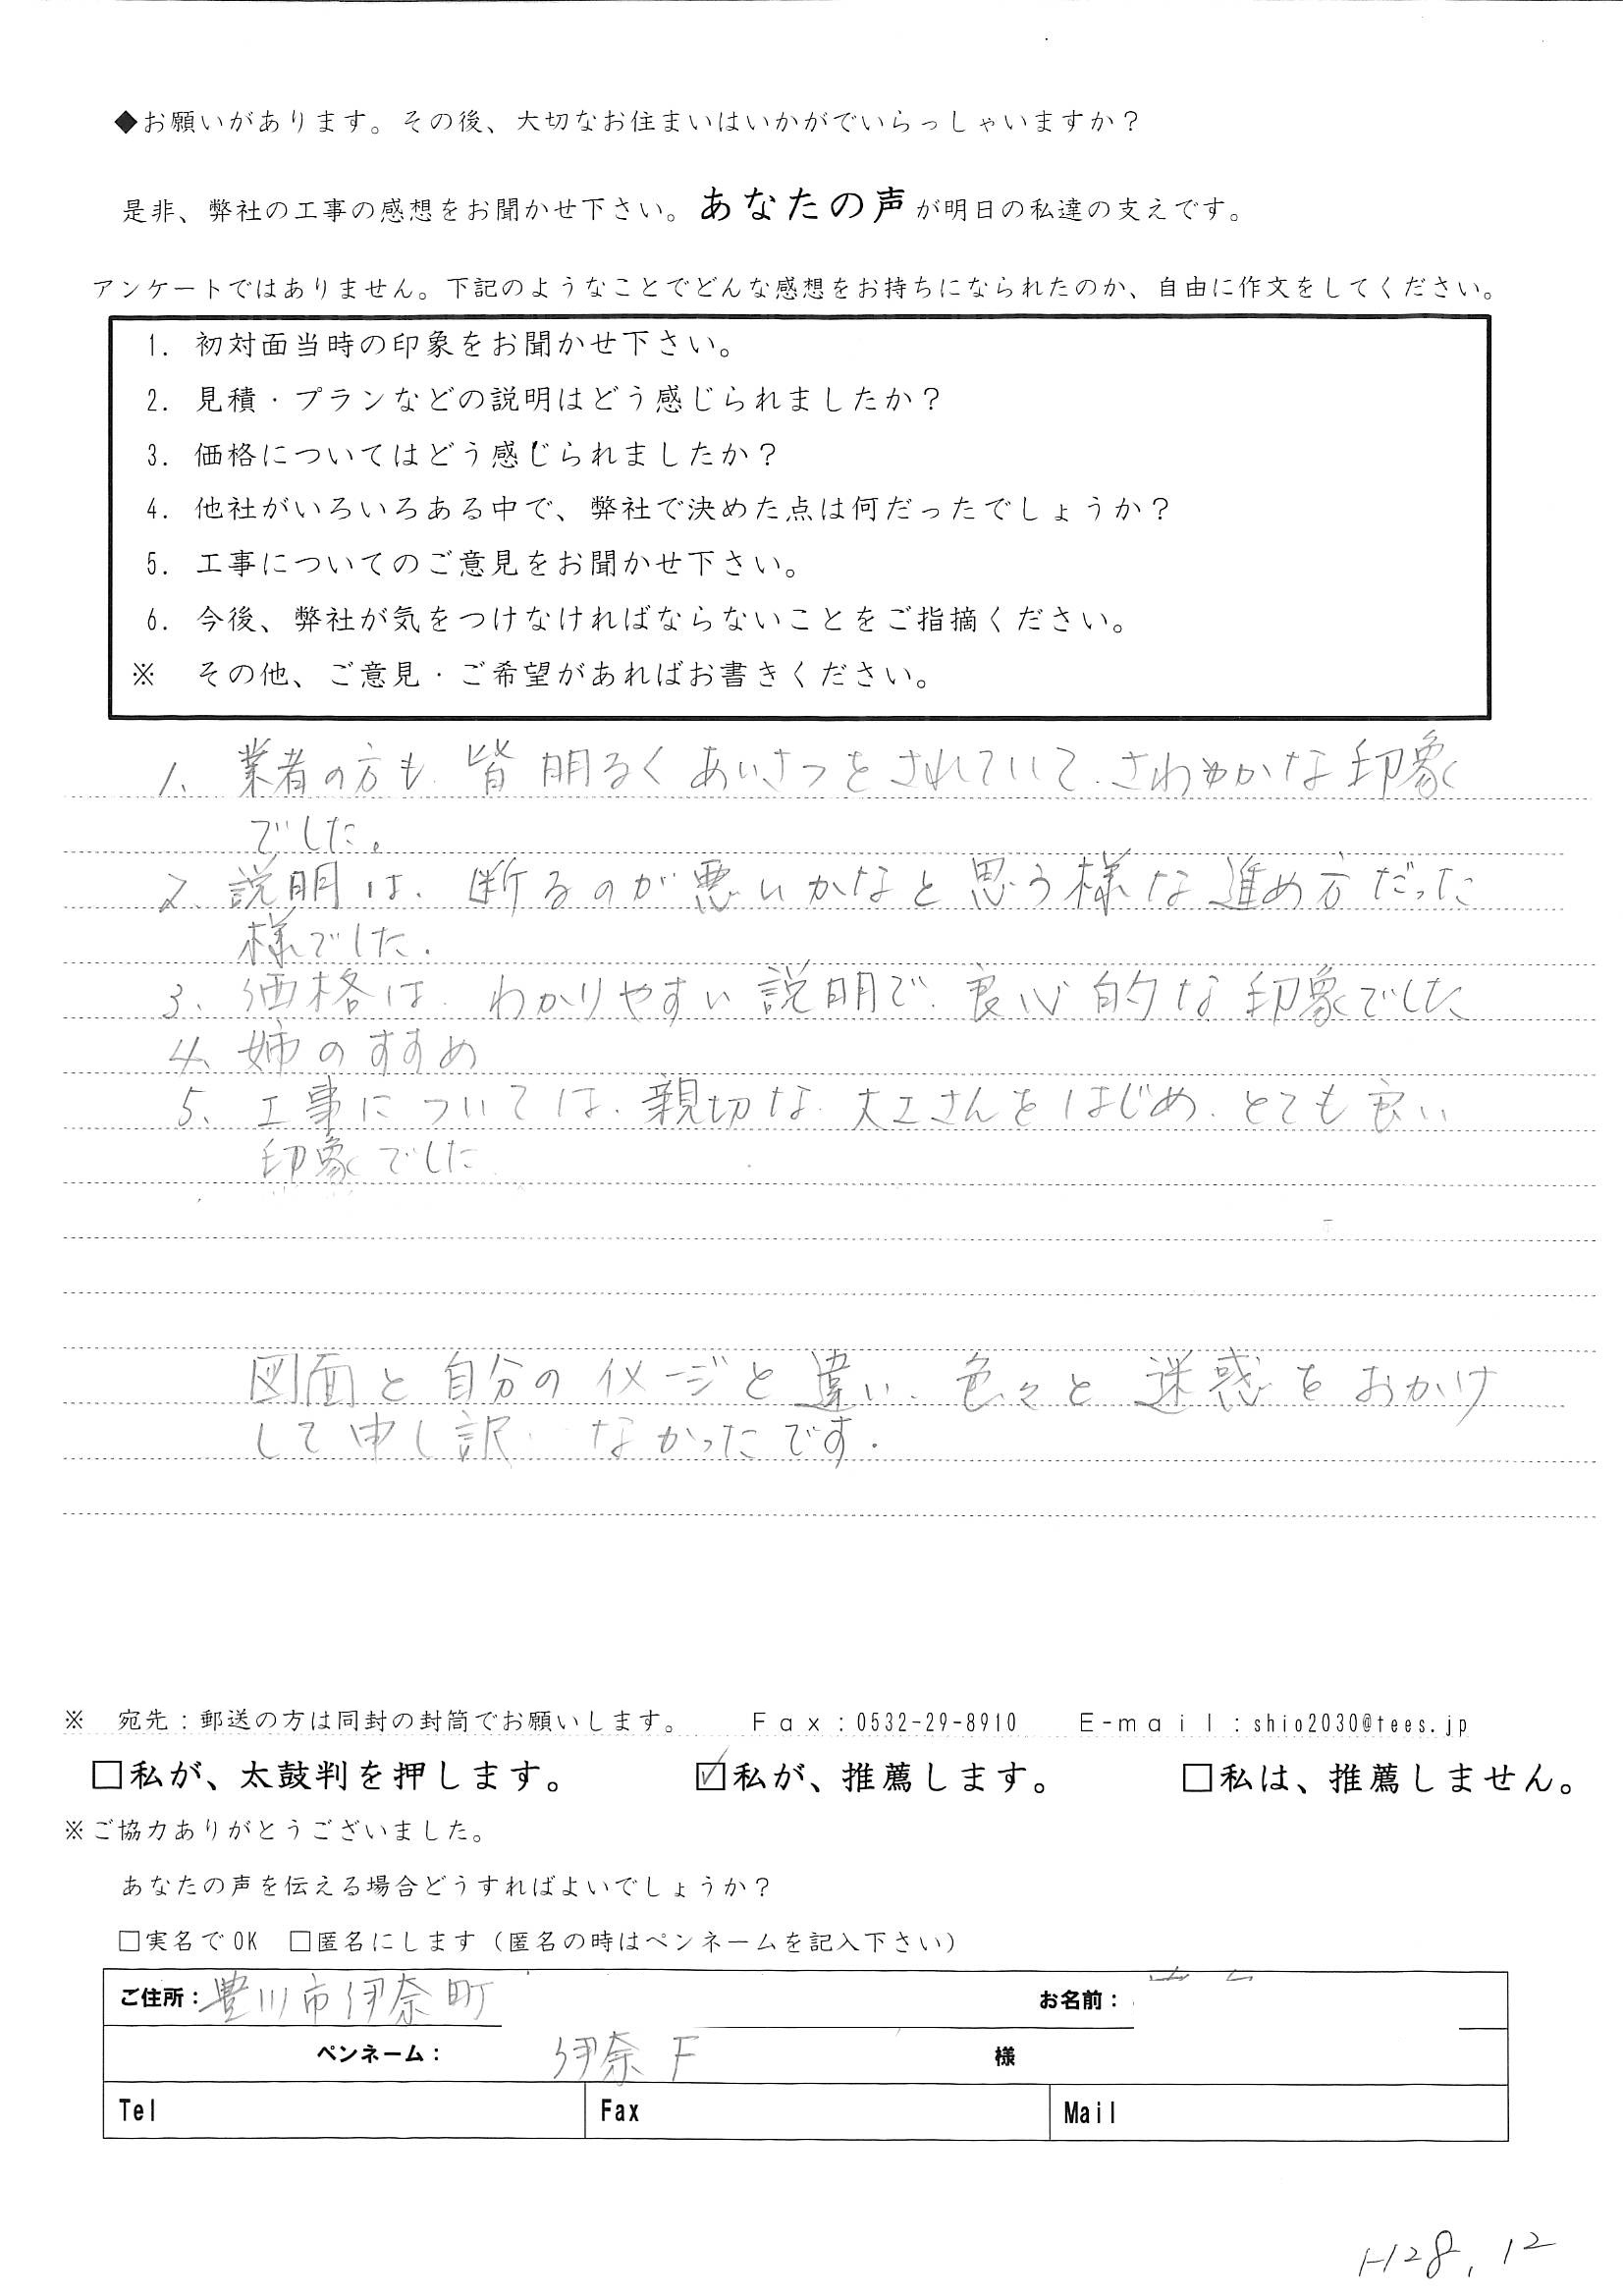 ◆お願いがあります。その後、大切なお住まいはいかがでいらっしゃいますか？
是非、弊社の工事の感想をお聞かせ下さい。あなたの声が明日の私達の支えです。
アンケートではありません。下記のようなことでどんな感想をお持ちになられたのか、自由に作文をしてください。
1. 初対面当時の印象をお聞かせ下さい。
2. 見積・プランなどの説明はどう感じられましたか？
3. 価格についてはどう感じられましたか？
4. 他社がいろいろある中で、弊社で決めた点は何だったでしょうか？
5. 工事についてのご意見をお聞かせ下さい。
6. 今後、弊社が気をつけなければならないことをご指摘ください。
※ その他、ご意見・ご希望があればお書きください。
1、業者の方も、皆明るくあいさつをされていて、さわやかな印象
でした。
2、説明は、断るのが悪いかなと思う様な進め方だった
様でした。
3、価格は、わかりやすい説明で、良心的な印象でした
4、姉のすすめ
5、工事については、親切な大工さんをはじめ、とても良い
印象でした
図面と自分のイメージと違い、色々と迷惑をおかけ
して申し訳なかったです。
※ 宛先：郵送の方は同封の封筒でお願いします。 Ｆａｘ：0532-29-8910 Ｅ-ｍａｉｌ：shio2030@tees.jp
□私が、太鼓判を押します。 ☑私が、推薦します。 □私は、推薦しません。
※ご協力ありがとうございました。
あなたの声を伝える場合どうすればよいでしょうか？
□実名でOK □匿名にします（匿名の時はペンネームを記入下さい）
ご住所：豊川市伊奈町 お名前：
ペンネーム： 伊奈 F 様
Tel Fax Mail
H28.12